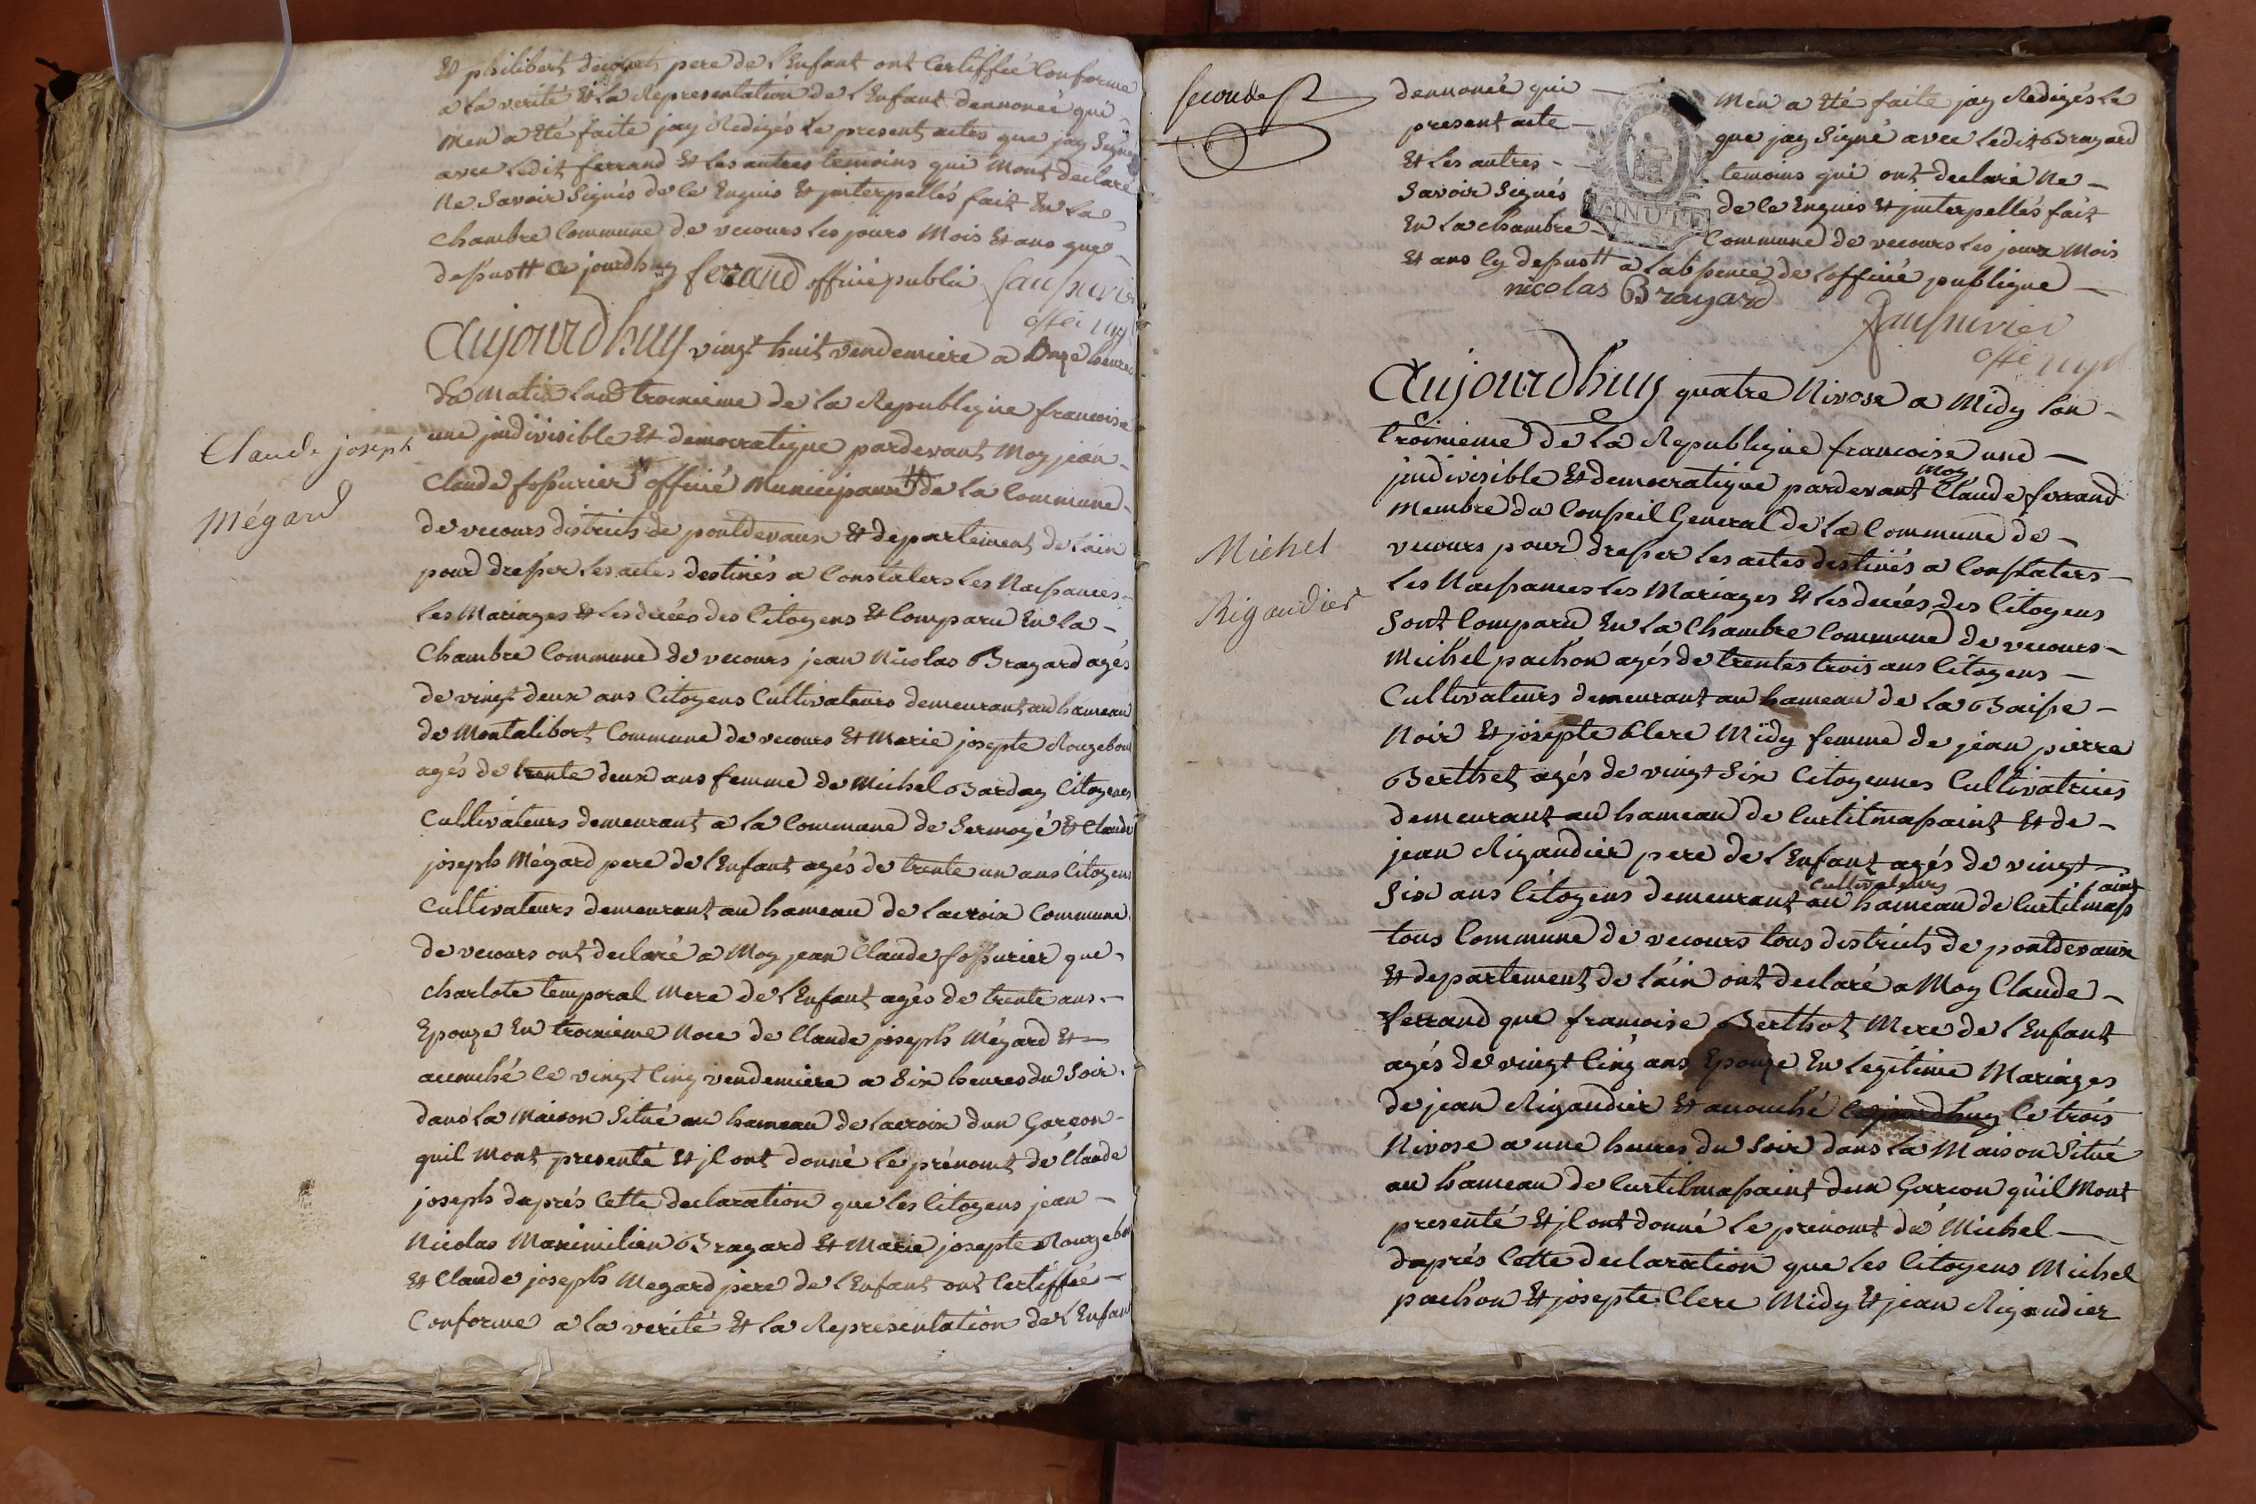 Et philibert decoeur pere de l'Enfant ont Certiffié Conforme
a la verité Et la Representation de l'Enfant dennoncé qui
Men a eté faite jay Redigés Le present actes que jay Signé
avec Ledit ferrand Et les autres temoins qui Mont declaré
Ne Savoir Signés de Ce Enquis Et jnterpellés fait En La
Chambre Commune de vecours Les jours Mois Et ans que
dessus
ferrand officié public
aujourdhuy vingt huit vendemiere a Onze heures
du Matin Lan troisieme de La Republique francoise
une jndivisible Et democratique pardevant Moy jean
Claude fossurier officié Municipaux de La Commune
de vecours district de pontdevaux Et departement de Lain
pour dresser Les actes destinés a Constaters Les Naissances
Les Mariages Et Les decées des Citoyens Et Comparu En La
Chambre Commune de vecours jean Nicolas Bragard agés
de vingt deux ans Citoyens Cultivateurs demeurant au hameau
de Montalibort Commune de vecours Et Marie josepte Rougebou
agés de trente deux ans femme de Michel Barday Citoyenes
Cultivateurs demeurant a La Commune de Sermoyé Et Claude
joseph Mégard pere de l'Enfant agés de trente un ans Citoyens
Cultivateurs demeurant au hameau de Lacroix Commune
de vecours ont declaré a Moy jean Claude fossurier que
charlote temporal Mere de l'Enfant agés de trente ans
Epouze En troisieme Noce de Claude joseph Mégard Et
acouché Le vingt Cinq vendemiere a Six heures du Soir
dans La Maison Situé au hameau de Lacroix dun Garcon
quil Mont presenté Et jl ont donné Le prénomt de Claude
joseph daprés Cette declaration que Les Citoyens jean
Nicolas Maximilien Bragard Et Marie josepte Rougebou
Et Claude joseph Megard pere de l'Enfant ont Certiffié
Conforme a La verité Et La Representation de l'Enfant
Claude joseph
Mégard
Seconde
dennoncé qui Men a eté faite jay Redigés Le
present acte que jay Signé avec Ledit Bragard
Et Les autres temoins qui ont declaré Ne
Savoir Signés de Ce Enquis Et jnterpellés fait
En La Chambre Commune de vecours Les jours Mois
Et ans Cy dessus a Labsence de Lofficié publique
MINUTE
nicolas Bragard
aujourdhuy quatre Nivose a Midy Lan
troisieme de La Republique francoise une
jndivisible Et democratique pardevant moy Claude ferrand
Membre du Conseil General de La Commune de
vecours pour dresser Les actes destinés a Constaters
Les Naissances Les Mariages Et Les decées des Citoyens
Sont Comparu En La Chambre Commune de vecours
Michel pachon agés de trentes trois ans Citoyens
Cultivateurs demeurant au hameau de La Baisse
Noir Et josepte Clere Midy femme de jean pierre
Berthet agés de vingt Six Citoyennes Cultivatrices
demeurant au hameau de Curtilmassaint Et de
jean Rigaudier pere de l'Enfant agés de vingt
Six ans Citoyens cultivateurs demeurant au hameau de Curtilmassaint
tous Commune de vecours tous districts de pontdevaux
Et departement de Láin ont declaré a Moy Claude
ferrand que francoise Berthot Mere de l'Enfant
agés de vingt Cinq ans Epouze En Legitime Mariages
de jean Rigaudier Et acouché Cejourdhuy Le trois
Nivose a une heures du Soir dans La Maison Situé
au hameau de Curtilmassaint dun Garcon quil Mont
presenté Et jl ont donné Le prenomt de Michel
daprés Cette declaration que Les Citoyens Michel
pachon Et josepte Clere Midy Et jean Rigaudier
Michel
Rigaudier